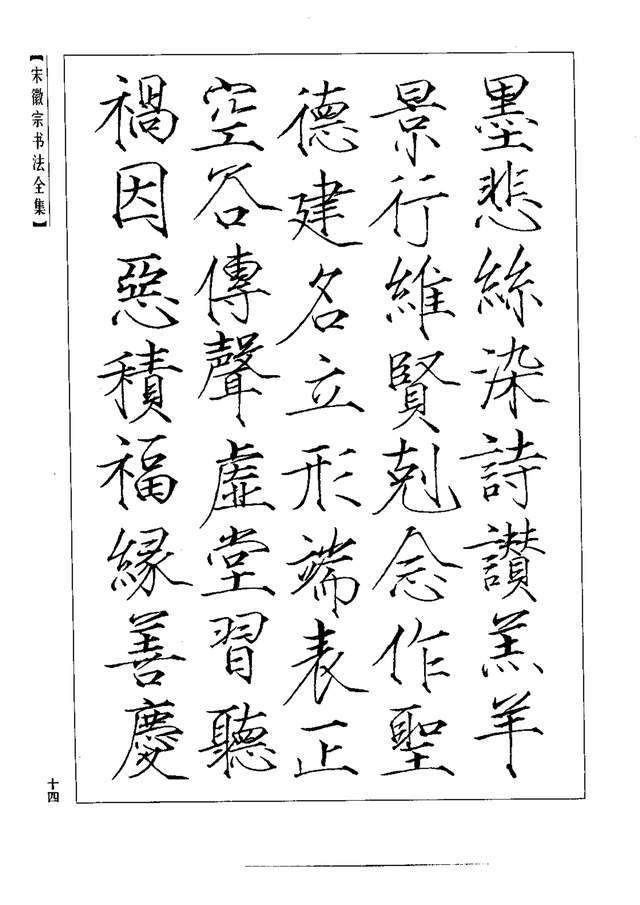 墨悲絲染詩讚羔羊
景行維賢剋念作聖
德建名立形端表正
空谷傳聲虛堂習聽
禍因惡積福緣善慶
【宋徽宗书法全集】
十四